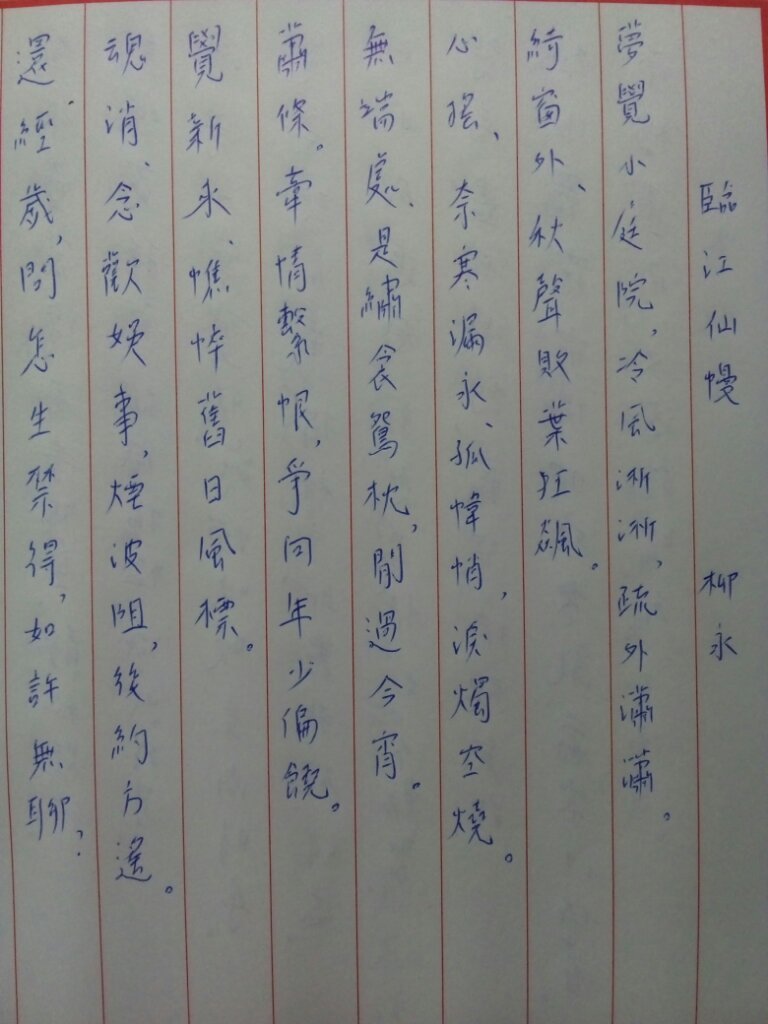 臨江仙慢 柳永
夢覺小庭院，冷風淅淅，疏外瀟瀟。
綺窗外、秋聲敗葉狂飆。
心搖、奈寒漏永、孤幃悄，淚燭空燒。
無端處、是繡衾鴛枕，閒過今宵。
蕭條。牽情繫恨，爭向年少偏饒。
覺新來、憔悴舊日風標。
魂消、念歡娛事，煙波阻，後約方遙。
還經歲，問怎生禁得，如許無聊？